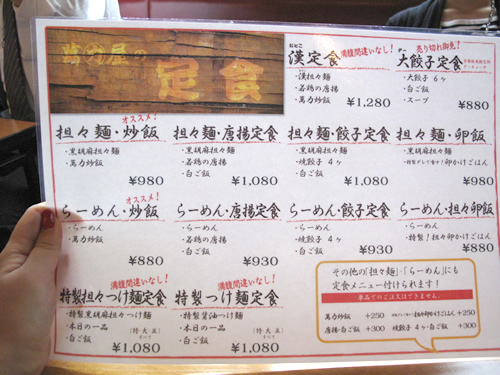 萬力屋の
定食
おとこ
漢定食
満腹間違いなし!
・漢担々麺
・若鶏の唐揚
・萬力炒飯
¥1,280
売り切れ御免!
大餃子定食
・大餃子 6ヶ
・白ご飯
・スープ
¥880
オススメ!
担々麺・炒飯
・黒胡麻担々麺
・萬力炒飯
¥980
担々麺・唐揚定食
・黒胡麻担々麺
・若鶏の唐揚
・白ご飯
¥1,080
担々麺・餃子定食
・黒胡麻担々麺
・焼餃子 4ヶ
・白ご飯
¥1,080
担々麺・卵飯
・黒胡麻担々麺
¥980
オススメ!
らーめん・炒飯
・らーめん
・萬力炒飯
¥880
らーめん・唐揚定食
・らーめん
・若鶏の唐揚
・白ご飯
¥930
らーめん・餃子定食
・らーめん
・焼餃子 4ヶ
・白ご飯
¥930
らーめん・担々卵飯
・らーめん
・特製!担々卵かけごはん
¥880
満腹間違いなし!
特製担々つけ麺定食
・特製黒胡麻担々つけ麺
・本日の一品
・白ご飯
¥1,080
満腹間違いなし!
特製つけ麺定食
・特製醤油つけ麺
・本日の一品
・白ご飯
¥1,080
その他の「担々麺」・「らーめん」にも
定食メニュー付けられます!
単品でのご注文はできません。
萬力炒飯 +250
担々卵かけごはん +250
唐揚・白ご飯 +300
焼餃子 4ヶ・白ご飯 +300